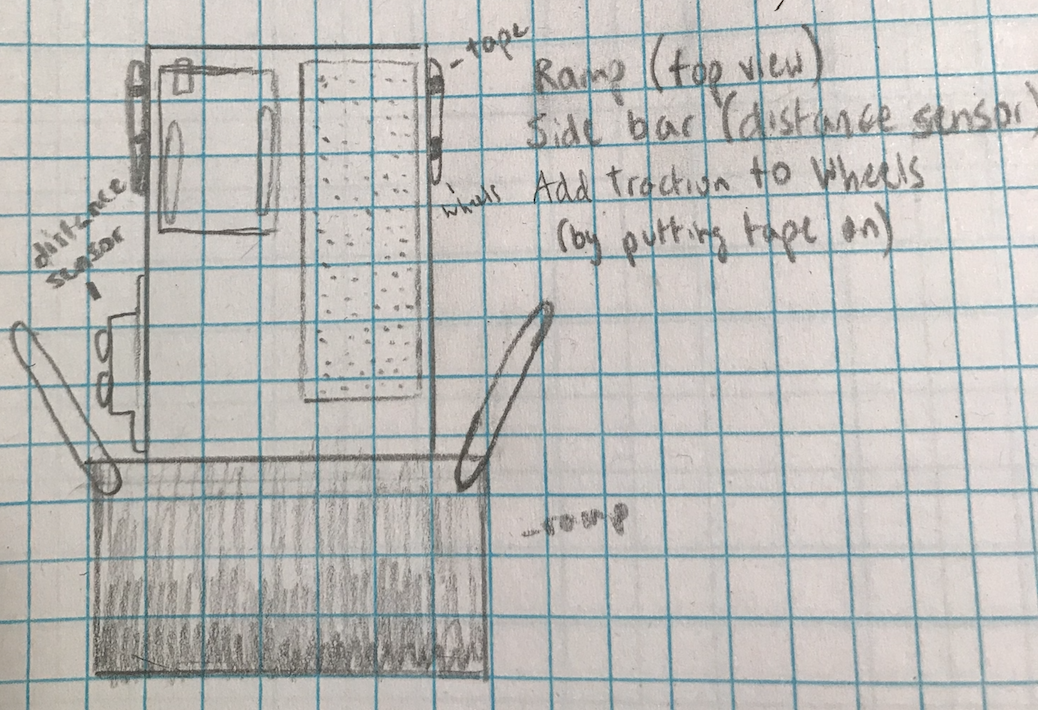 -tape
Ramp (top view)
Side bar (distance sensor)
Add traction to wheels
(by putting tape on)
wheels
distance
sensor
-ramp